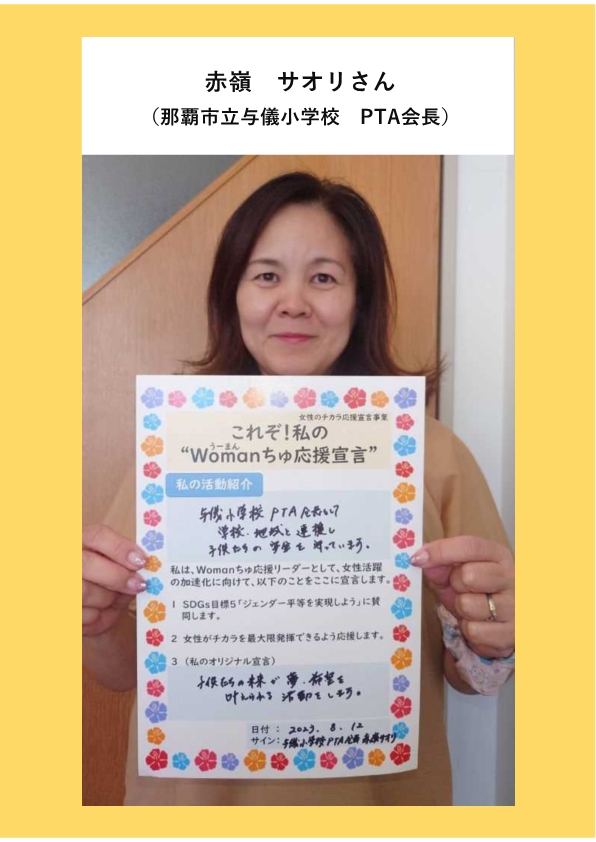 赤嶺　サオリさん
（那覇市立与儀小学校　PTA会長）
女性のチカラ応援宣言事業
これぞ！私の
うーまん
“Womanちゅ応援宣言”
私の活動紹介
与儀小学校PTA会長として
学校、地域と連携し
子供たちの学生を守っています。
私は、Womanちゅ応援リーダーとして、女性活躍
の加速化に向けて、以下のことをここに宣言します。
1 SDGs目標5「ジェンダー平等を実現しよう」に賛
同します。
2 女性がチカラを最大限発揮できるよう応援します。
3 （私のオリジナル宣言）
子供たちの未来が夢、希望を
叶えられる活動をします。
日付 ： 2023. 8. 12
サイン：与儀小学校PTA会長 赤嶺サオリ